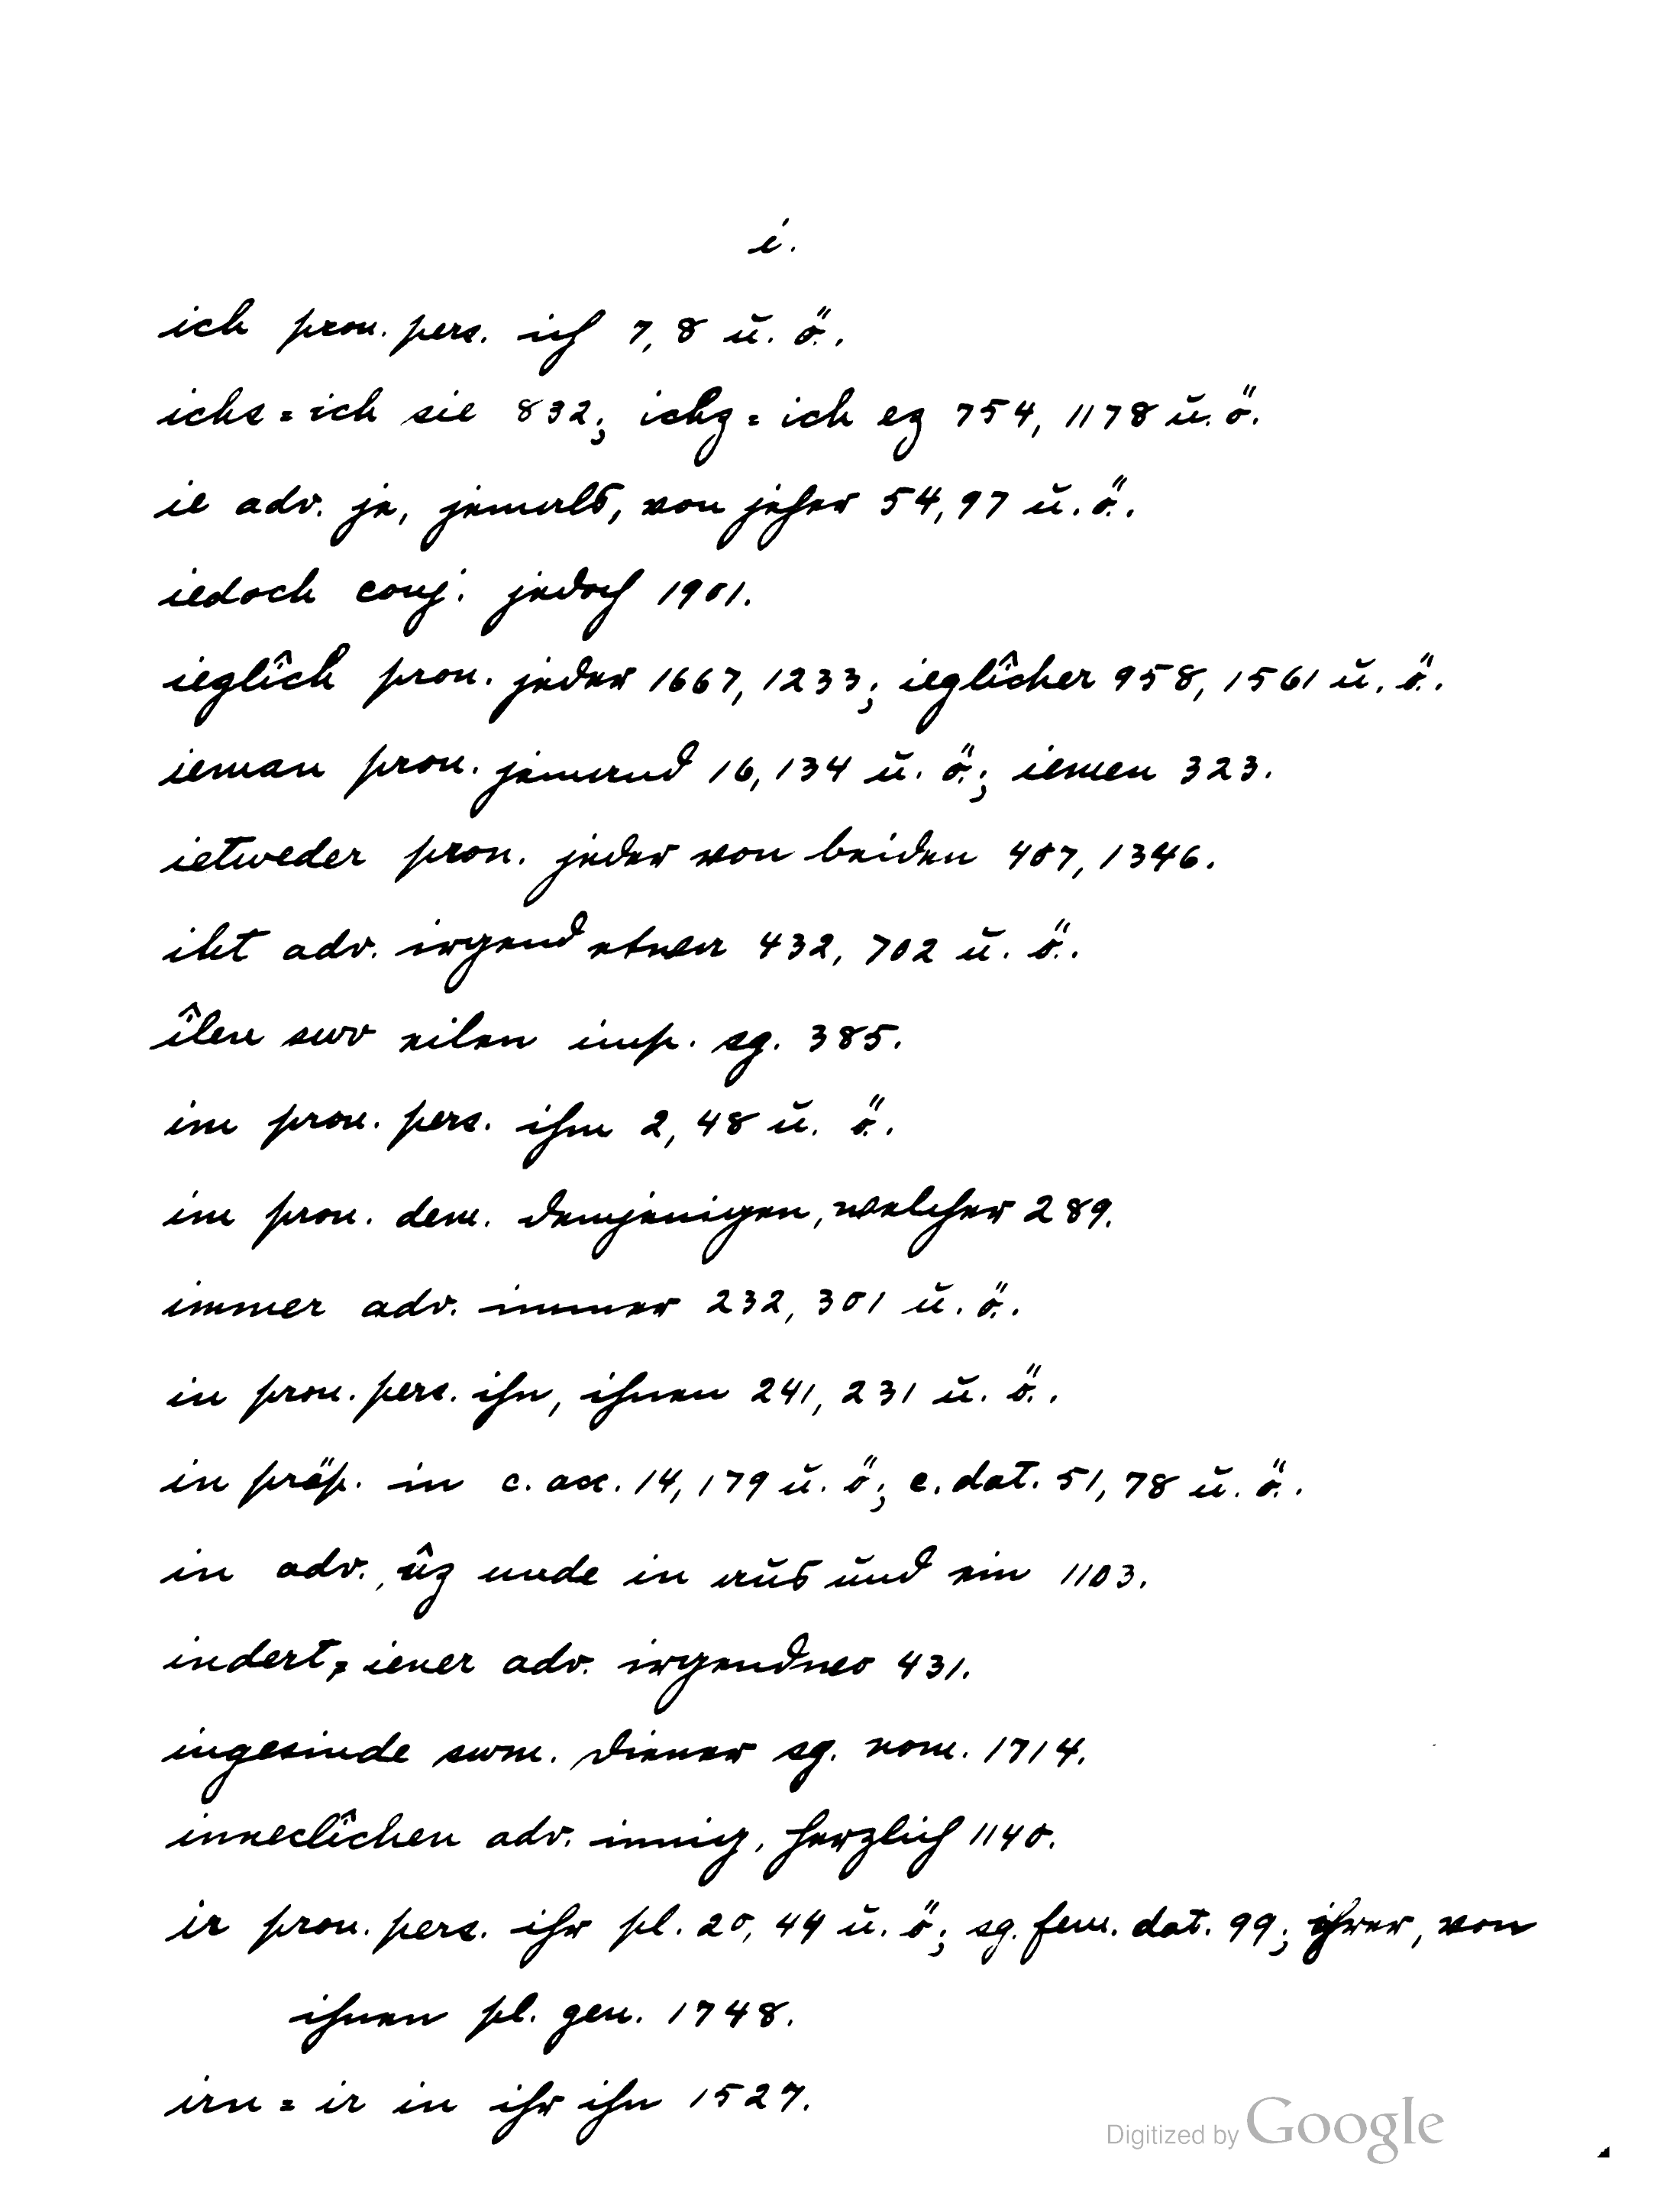 i.
ich pron. pers. ich 7, 8 u. ö.
ichs = ich sie 832; ichz = ich ez 754, 1178 u. ö.
ie adv. je, jemals, von jeher 54, 97 u. ö.
iedoch conj. jedoch 1901.
ieglîch pron. jeder 1667, 1233; ieglîcher 958, 1561 u. ö.
ieman pron. jemand 16, 134 u. ö.; iemen 323.
ietweder pron. jeder von beiden 407, 1346.
iht adv. irgend etwa 432, 702 u. ö.
îlen swv eilen imp. sg. 385.
im pron. pers. ihm 2, 48 u. ö.
im pron. dem. demjenigen, welcher 289.
immer adv. immer 232, 301 u. ö.
in pron. pers. ihn, ihnen 241, 231 u. ö.
in präp. in c. acc. 14, 179 u. ö; c. dat. 51, 78 u. ö.
in adv., ûz unde in aus und ein 1103.
indert, = iener adv. irgendwo 431.
ingesinde swm. Diener sg. nom. 1714.
inneclîchen adv. innig, herzlich 1140.
ir pron. pers. ihr pl. 20, 44 u. ö; sg. fem. dat. 99; ihrer, von
ihnen pl. gen. 1748.
irn = ir in ihr ihn 1527.
Digitized by Google